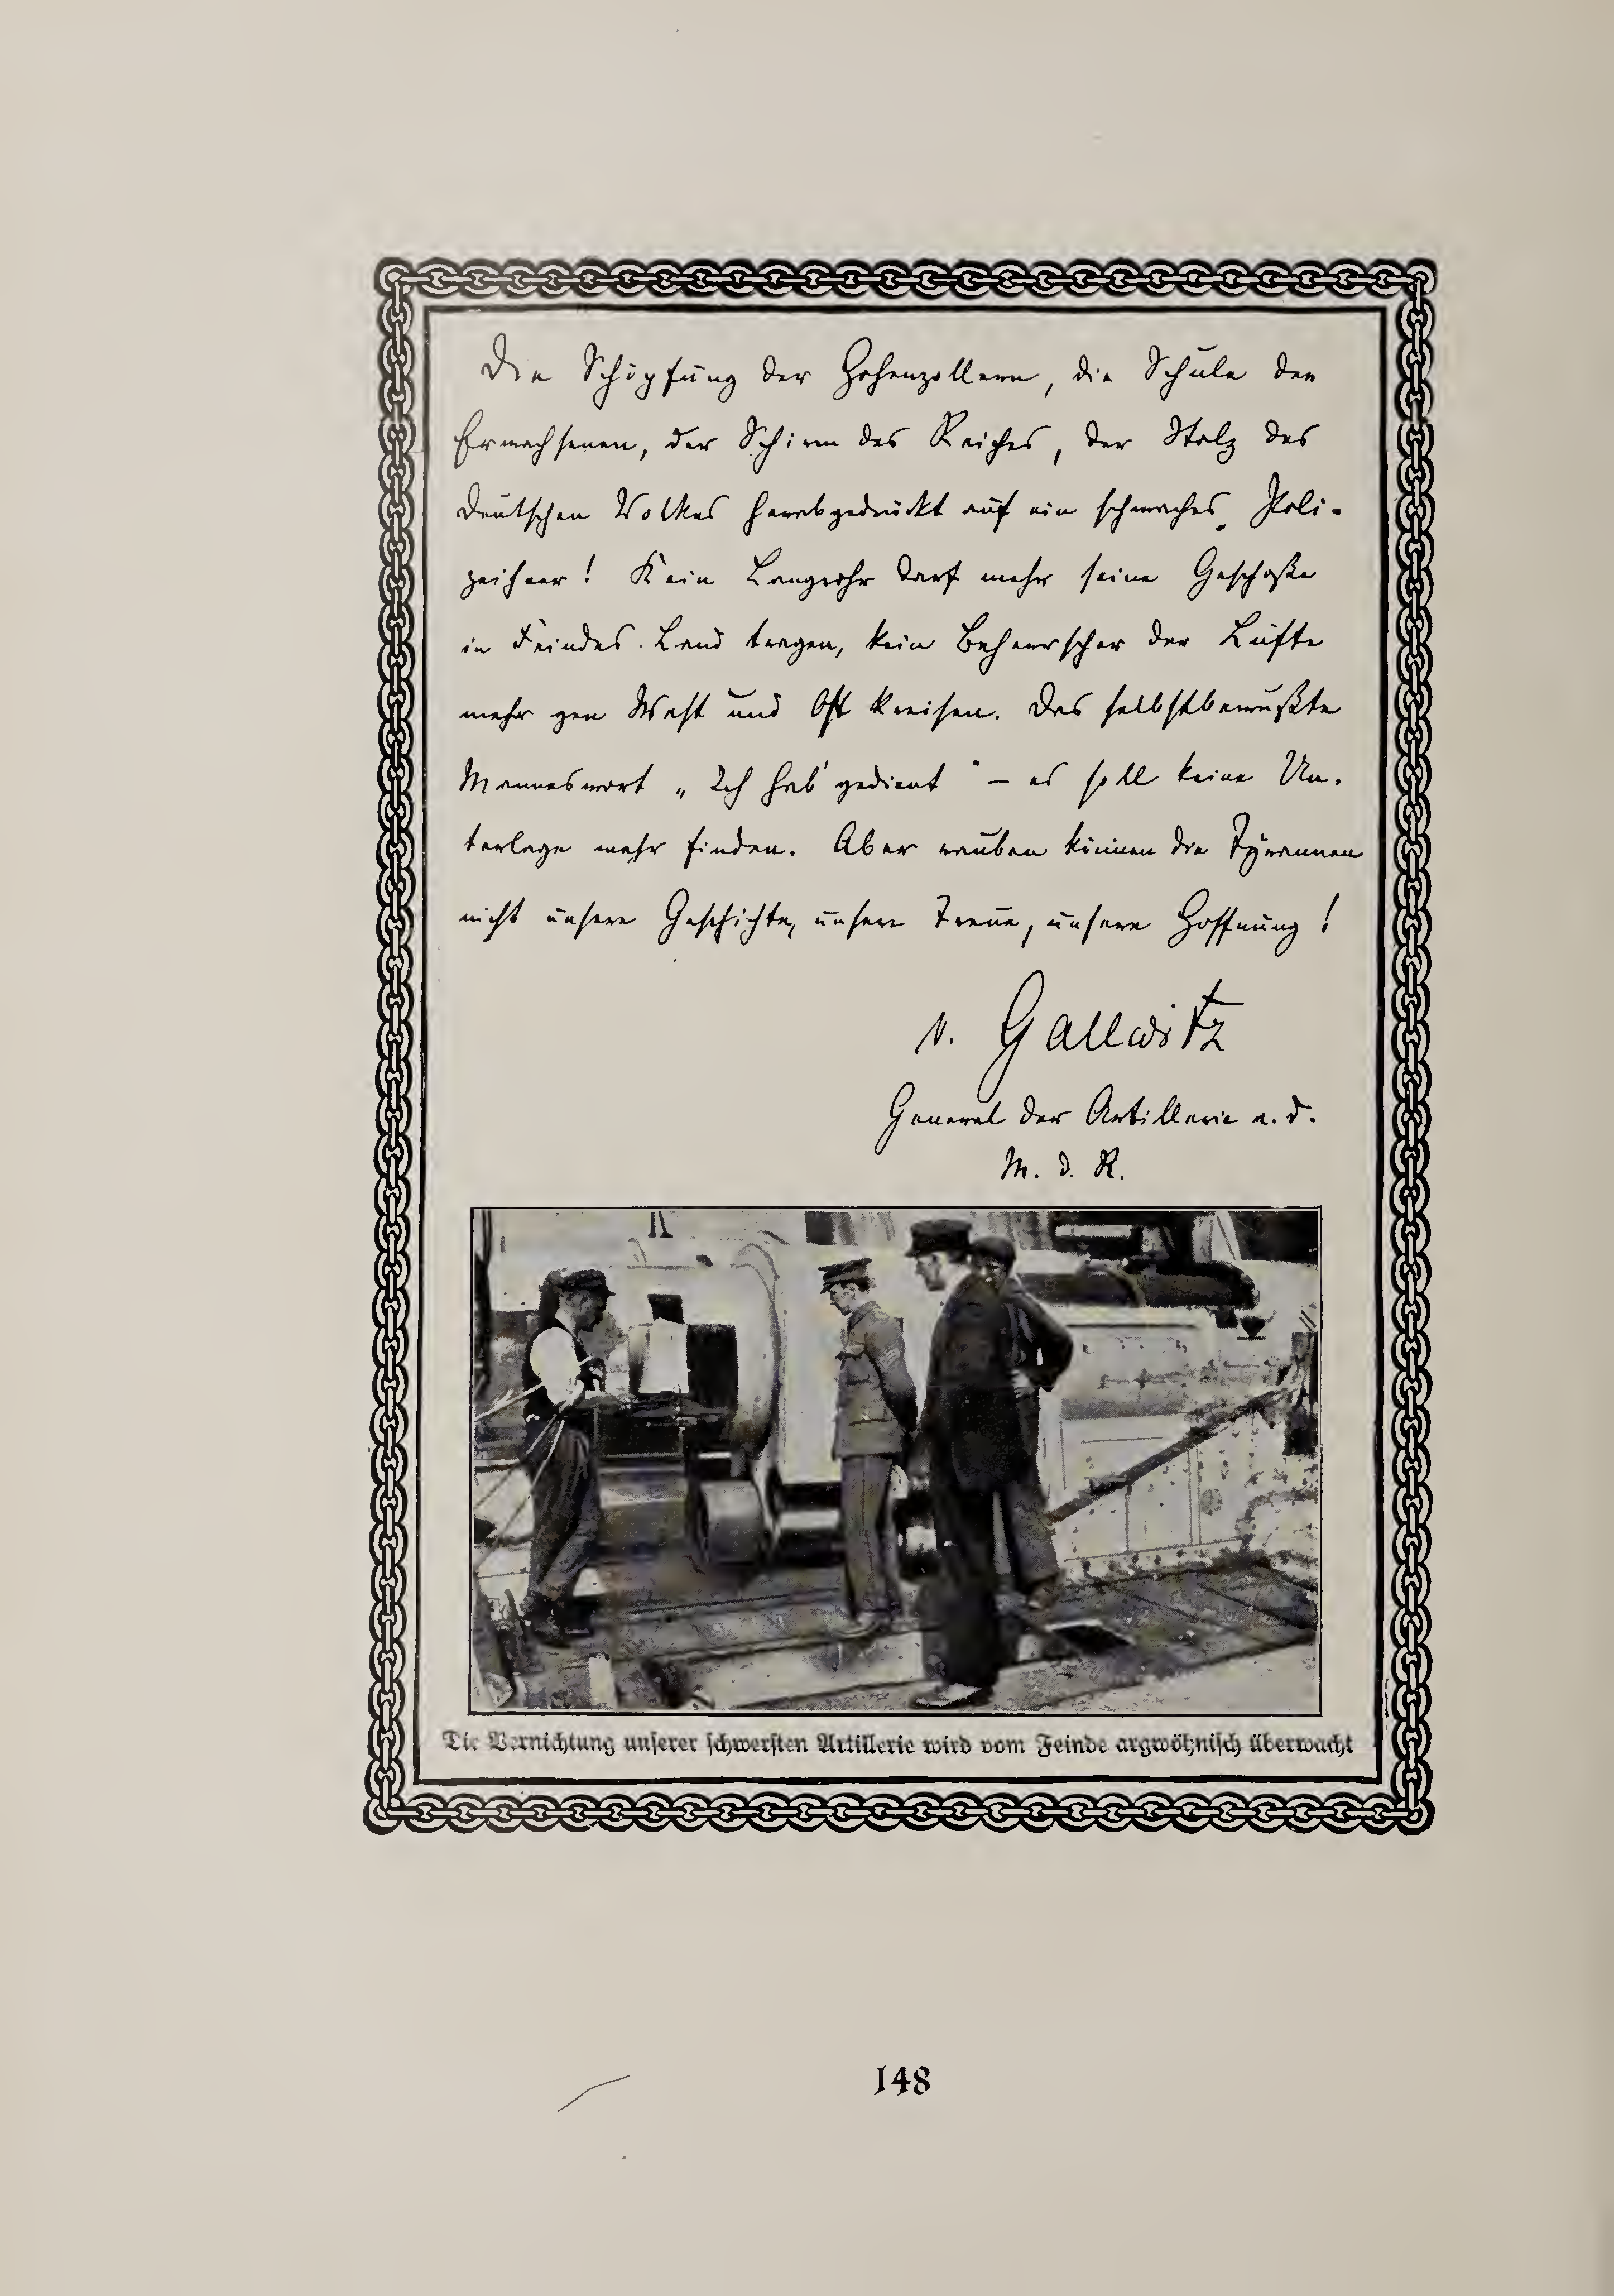 Die Schöpfung der Hohenzollern, die Schule der
Erwachsenen, der Schirm des Reiches, der Stolz des
deutschen Volkes herabgedrückt auf ein schwaches Poli-
zeiheer! Kein Langrohr darf mehr seine Geschoße
in Feindes Land tragen, kein Beherrscher der Lüfte
mehr gen West und Ost kreisen. Das selbstbewußte
Manneswort „Ich hab' gedient" – es soll keine Un-
terlage mehr finden. Aber rauben können die Tyrannen
nicht unsere Geschichte, unsere Treue, unsere Hoffnung!
v. Gallwitz
General der Artillerie a. D.
M. d. R.
Die Vernichtung unserer schwersten Artillerie wird vom Feinde argwöhnisch überwacht
148